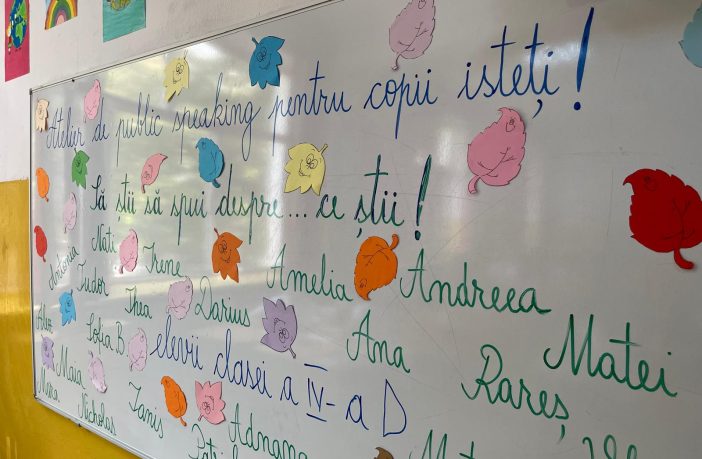 Atelier de public speaking pentru copii isteți!
Să știi să spui despre... ce știi!
Antonia Nati Irene Amelia Andreea
Tudor Thea Darius Ana Matei
Alex Sofia B elevii clasei a IV-a D Rareș
Maia
Nicholas Ianis Adnana